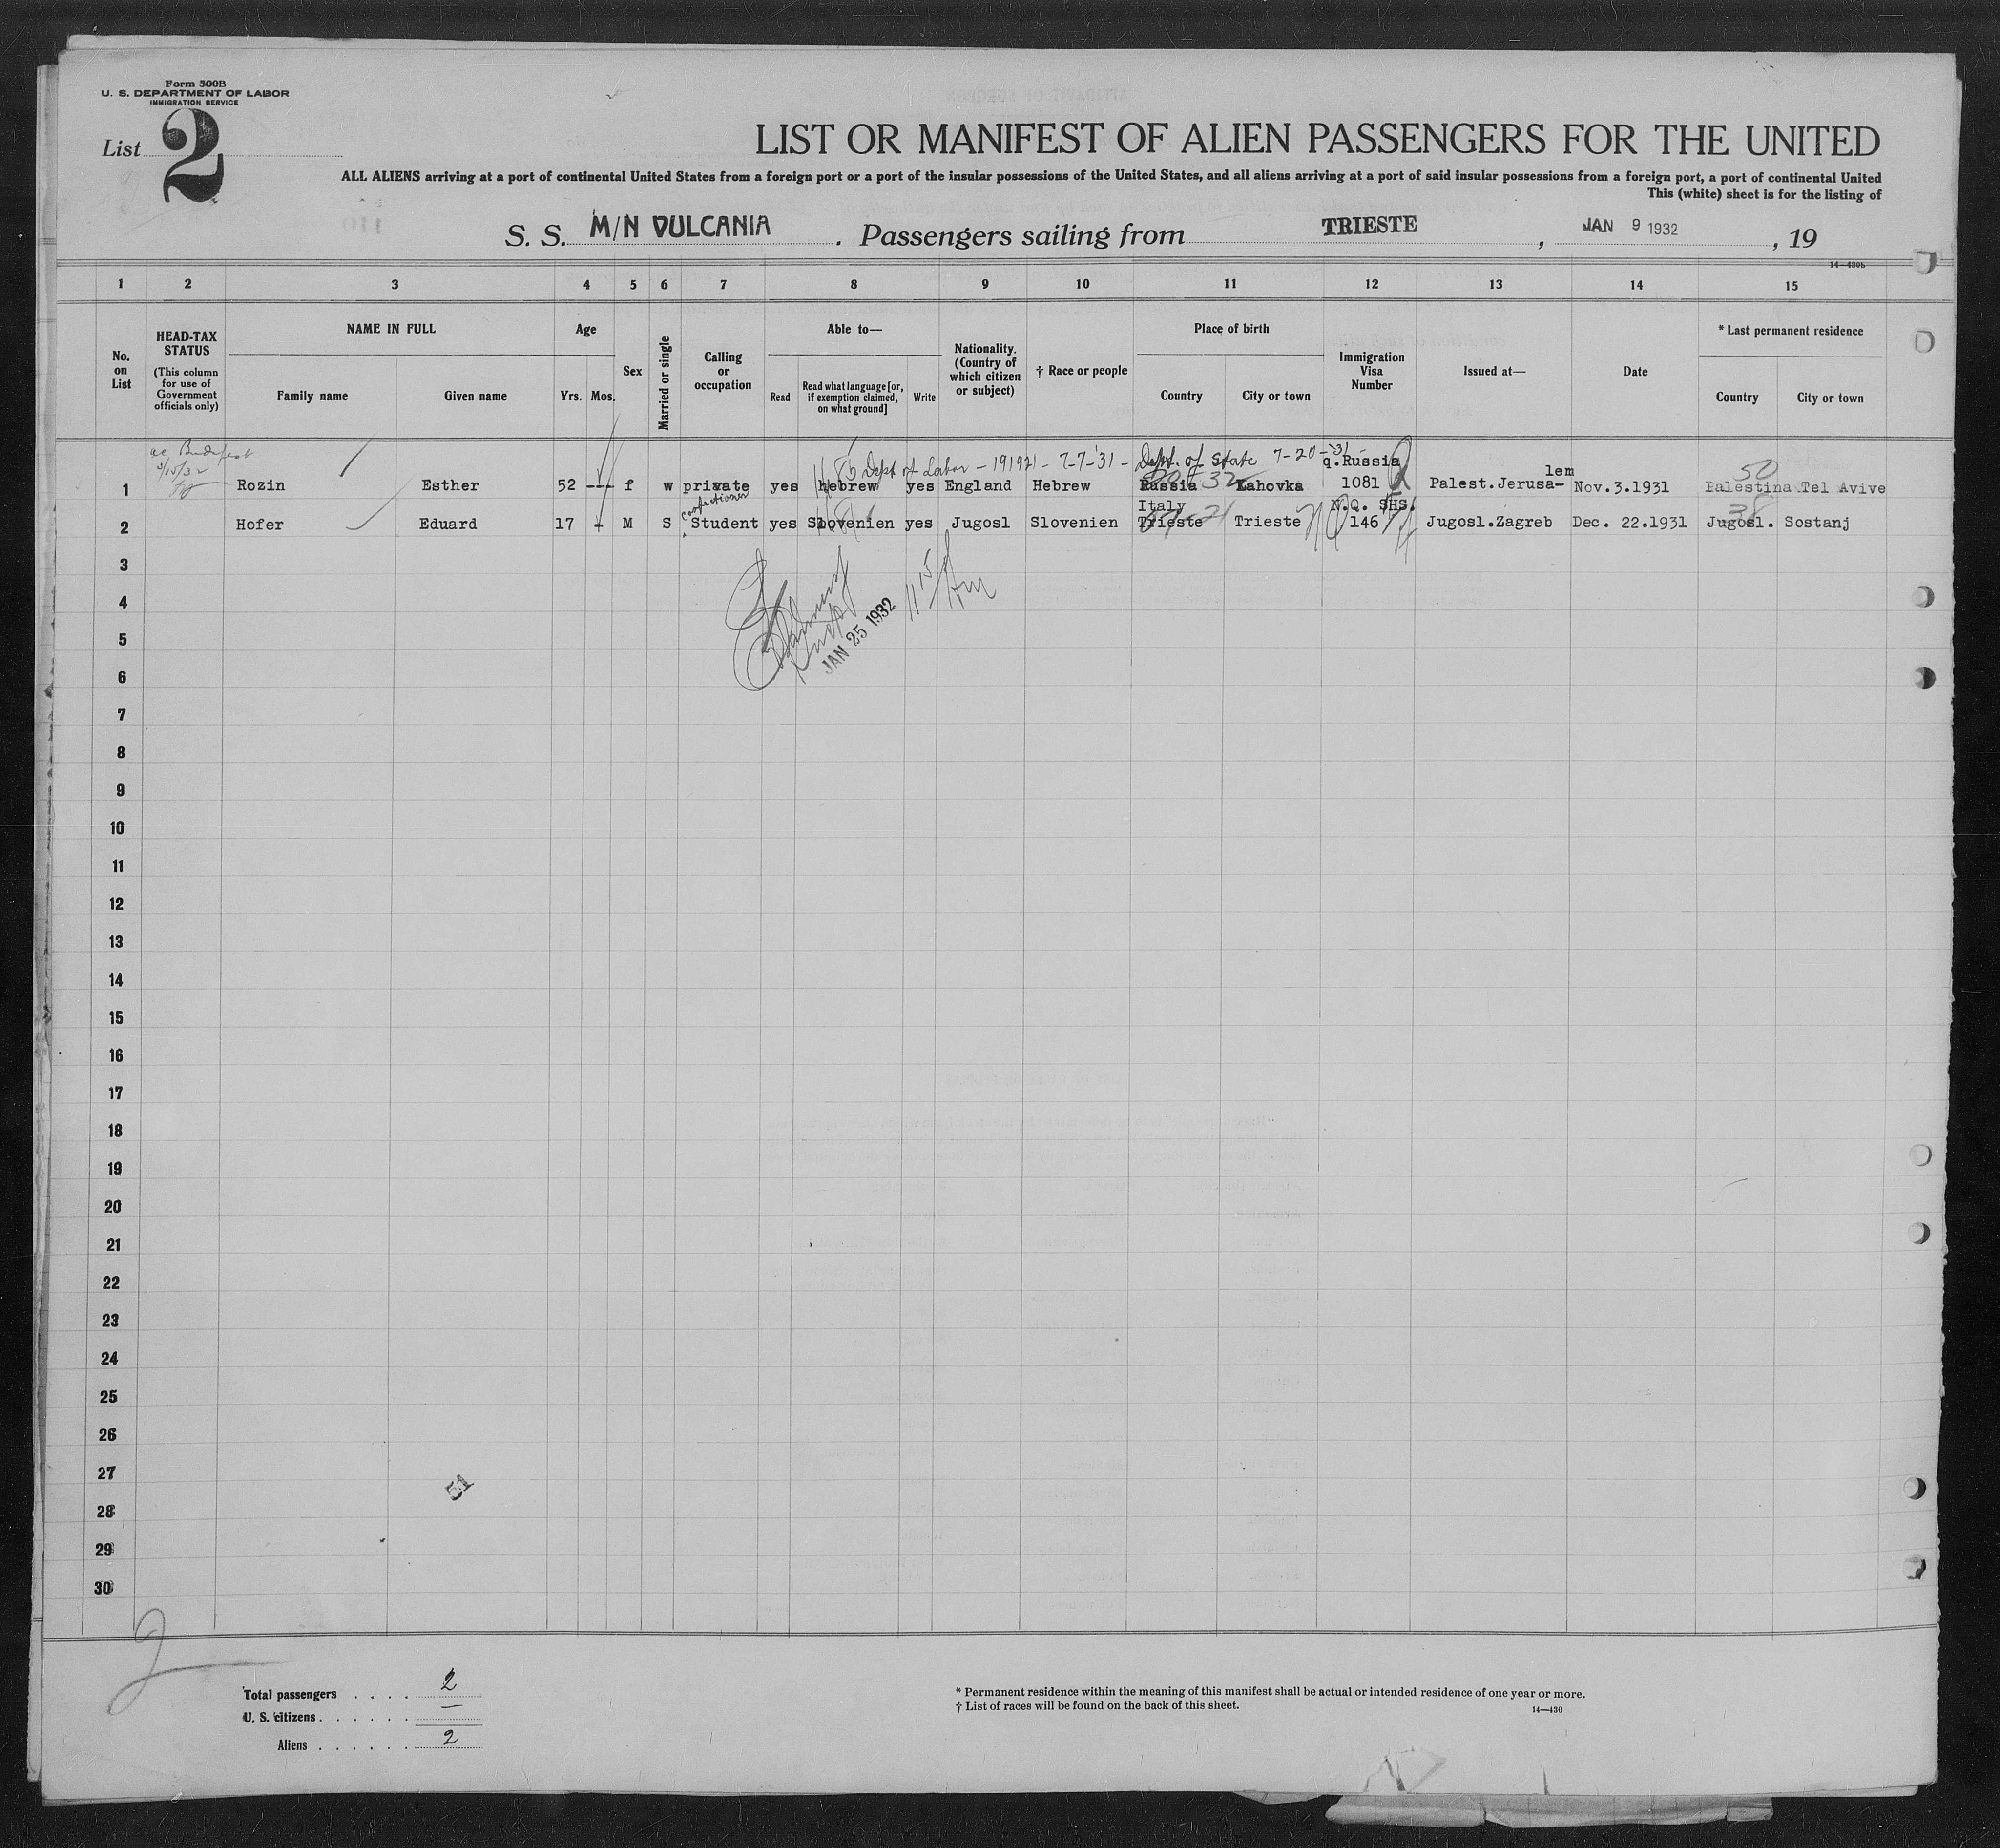 Form 500B
U. S. DEPARTMENT OF LABOR
IMMIGRATION SERVICE
List 2
LIST OR MANIFEST OF ALIEN PASSENGERS FOR THE UNITED
ALL ALIENS arriving at a port of continental United States from a foreign port or a port of the insular possessions of the United States, and all aliens arriving at a port of said insular possessions from a foreign port, a port of continental United
This (white) sheet is for the listing of
S. S. M/N VULCANIA . Passengers sailing from TRIESTE , JAN 9 1932 , 19
14—430b
1 2 3 4 5 6 7 8 9 10 11 12 13 14 15
No. on List
HEAD-TAX STATUS
(This column for use of Government officials only)
NAME IN FULL
Family name Given name
Age
Yrs. Mos.
Sex
Married or single
Calling or occupation
Able to—
Read
Read what language [or, if exemption claimed, on what ground]
Write
Nationality. (Country of which citizen or subject)
† Race or people
Place of birth
Country City or town
Immigration Visa Number
Issued at—
Date
* Last permanent residence
Country City or town
Dept of Labor - 191921 - 7-7-'31 - Dept. of State 7-20-31
q.Russia
1 Rozin Esther 52 --- f w private yes hebrew yes England Hebrew Russia Kahovka 1081 Palest.Jerusa-lem Nov.3.1931 Palestina Tel Avive
50
confectioner
Italy
N.Q. SHS.
2 Hofer Eduard 17 M S Student yes Slovenien yes Jugosl Slovenien Trieste Trieste 146 Jugosl.Zagreb Dec. 22.1931 Jugosl. Sostanj
38
3
4
5
JAN 25 1932
6
7
8
9
10
11
12
13
14
15
16
17
18
19
20
21
22
23
24
25
26
27
51
28
29
30
2
Total passengers . . . . 2
U. S. citizens . . . . . . —
Aliens . . . . . . 2
* Permanent residence within the meaning of this manifest shall be actual or intended residence of one year or more.
† List of races will be found on the back of this sheet.
14—430